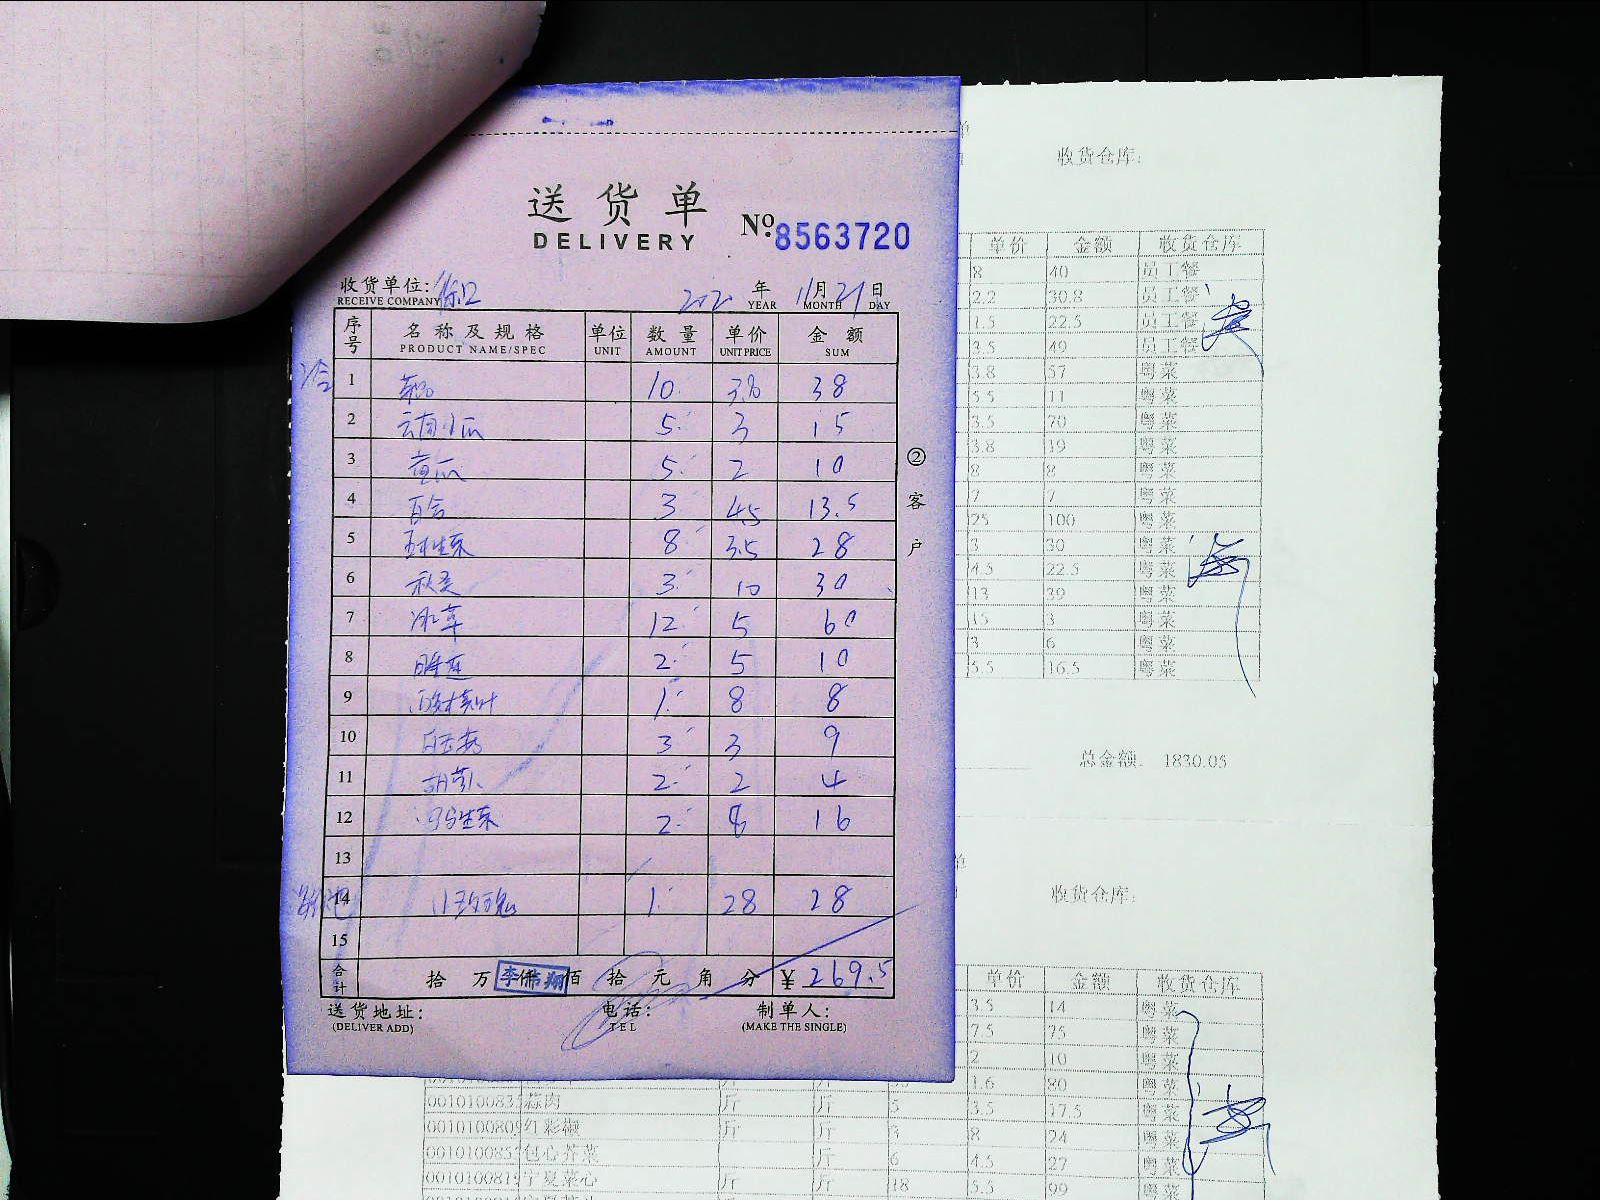 送货单
DELIVERY
No. 8563720
收货单位:
RECEIVE COMPANY
2020 年 11 月 21 日
YEAR MONTH DAY
序号 名称及规格 单位 数量 单价 金额
PRODUCT NAME/SPEC UNIT AMOUNT UNIT PRICE SUM
1 10 3.8 38
2 云南小瓜 5 3 15
3 黄瓜 5 2 10
4 百合 3 4.5 13.5
5 生菜 8 3.5 28
6 秋葵 3 10 30
7 冰草 12 5 60
8 2 5 10
9 1 8 8
10 3 3 9
11 2 2 4
12 生菜 2 8 16
13
14 小玫瑰 1 28 28
15
合计 拾 万 李伟翔 佰 拾 元 角 分 ¥ 269.5
送货地址: 电话: 制单人:
(DELIVER ADD) TEL (MAKE THE SINGLE)
②客户
单
收货仓库:
单价 金额 收货仓库
8 40 员工餐
2.2 30.8 员工餐
1.5 22.5 员工餐
3.5 49 员工餐
3.8 57 粤菜
5.5 11 粤菜
3.5 70 粤菜
3.8 19 粤菜
8 8 粤菜
7 7 粤菜
25 100 粤菜
3 30 粤菜
4.5 22.5 粤菜
13 39 粤菜
15 3 粤菜
3 6 粤菜
5.5 16.5 粤菜
总金额: 1830.05
单
收货仓库:
单价 金额 收货仓库
3.5 14 粤菜
7.5 75 粤菜
2 10 粤菜
1.6 80 粤菜
蒜肉 斤 斤 5 3.5 17.5 粤菜
红彩椒 斤 斤 3 8 24 粤菜
包心芥菜 斤 6 4.5 27 粤菜
宁夏菜心 斤 斤 18 5.5 99 粤菜